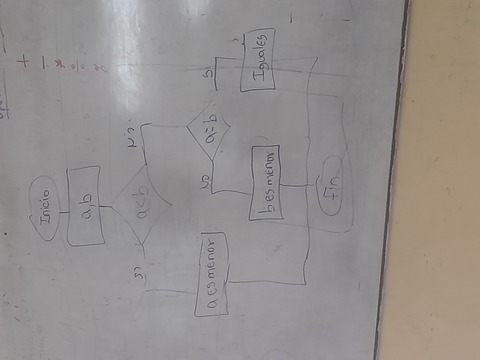 Inicio
a,b
a<b
Si
No
a es menor
a=b
No
Si
b es menor
Iguales
Fin